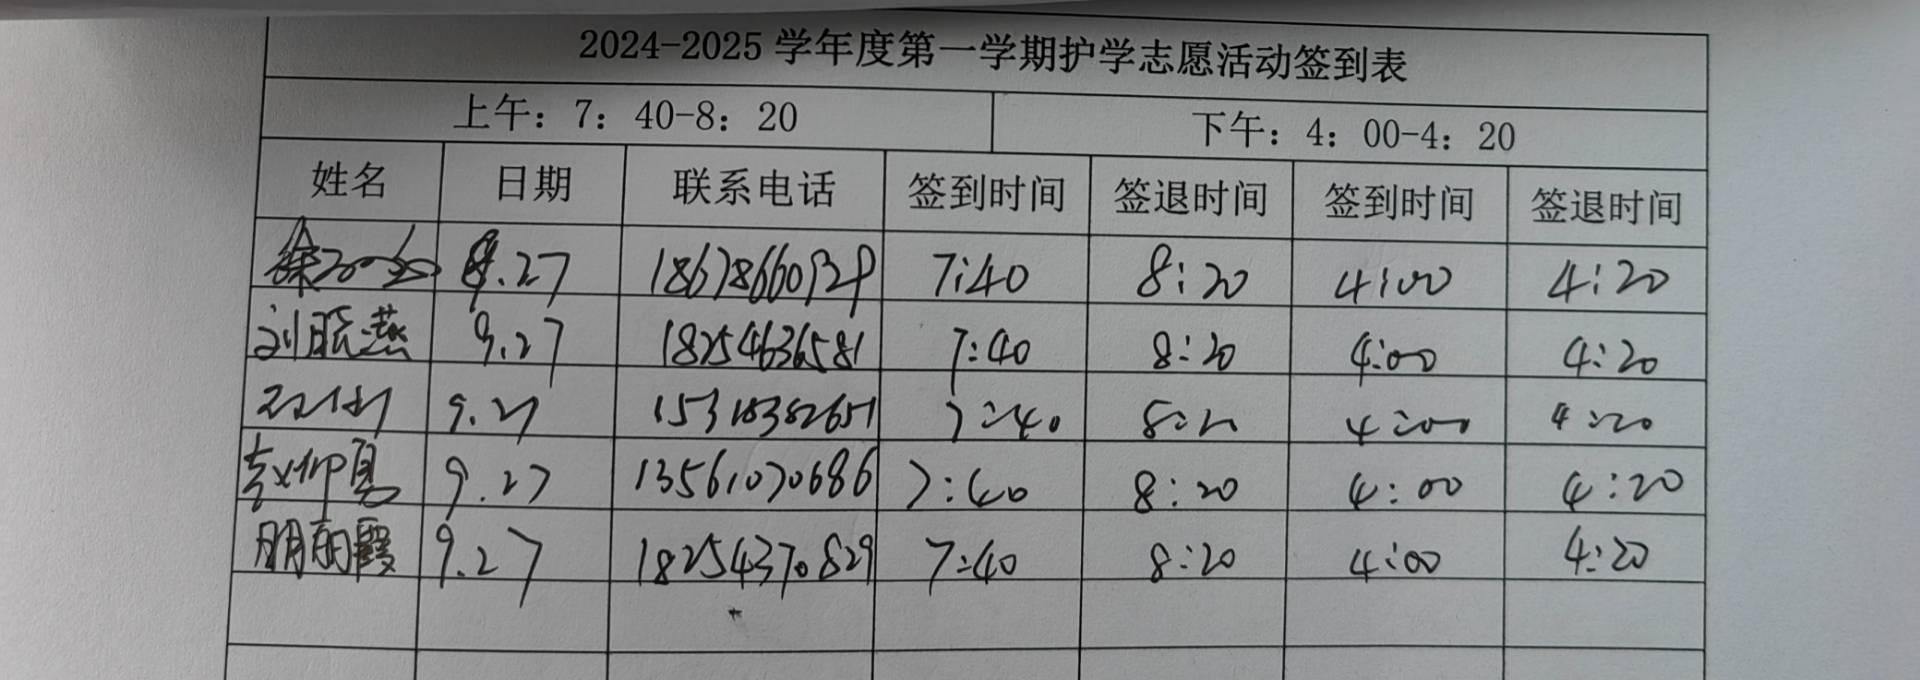 2024-2025 学年度第一学期护学志愿活动签到表
上午：7：40-8：20 下午：4：00-4：20
姓名 日期 联系电话 签到时间 签退时间 签到时间 签退时间
9.27 7:40 8:20 4:00 4:20
刘晓燕 9.27 18254636581 7:40 8:20 4:00 4:20
9.27 15318382651 7:40 8:20 4:00 4:20
9.27 13561070686 7:40 8:20 4:00 4:20
9.27 18254370829 7:40 8:20 4:00 4:20